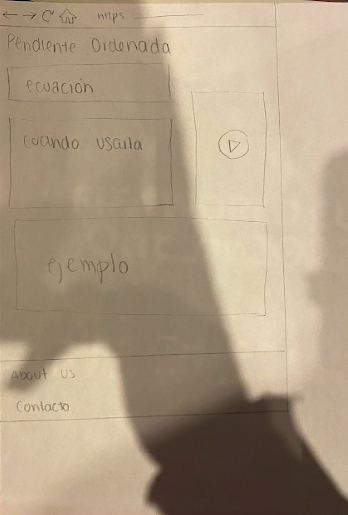 https:
Pendiente Ordenada
ecuación
cuando usarla
ejemplo
About us
Contacto